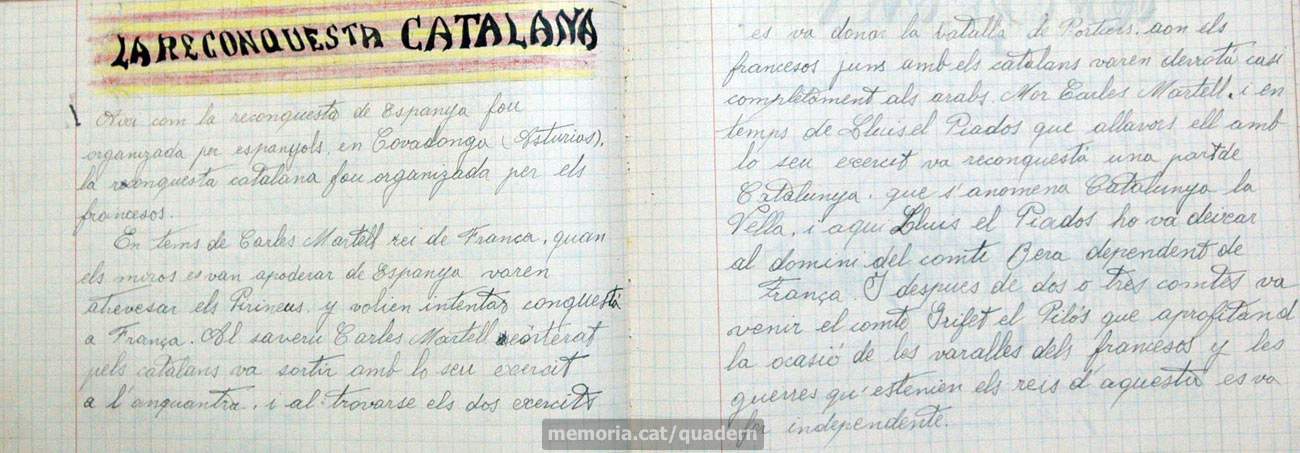 LA RECONQUESTA CATALANA
Aixi com la reconquesta de Espanya fou
organizada per espanyols, en Covadonga (Asturias),
la reconquesta catalana fou organizada per els
francesos.
En tems de Carles Martell rei de França, quan
els moros es van apoderar de Espanya varen
atrevesar els Pirineus, y volien intentar conquestá
a França. Al saveru Carles Martell
pels catalans va sortir amb lo seu exercit
a l'anquantra, i al trovarse els dos exercits
es va donar la batalla de Portiers, aon els
francesos juns amb els catalans varen derrotá casi
completament als arabs. Mor Carles Martell, i en
temps de Lluis el Piados que allavors ell amb
lo seu exercit va reconquestá una part de
Catalunya, que s'anomena Catalunya la
Vella, i aqui Lluis el Piados ho va deixar
al domini del comte Bera dependent de
França. I despues de dos o tres comtes va
venir el comte Grifet el Pilós que aprofitand
la ocasió de les varalles dels francesos y les
guerres qu'estenien els reis d'aquesta es va
fer independente.
memoria.cat/quadern